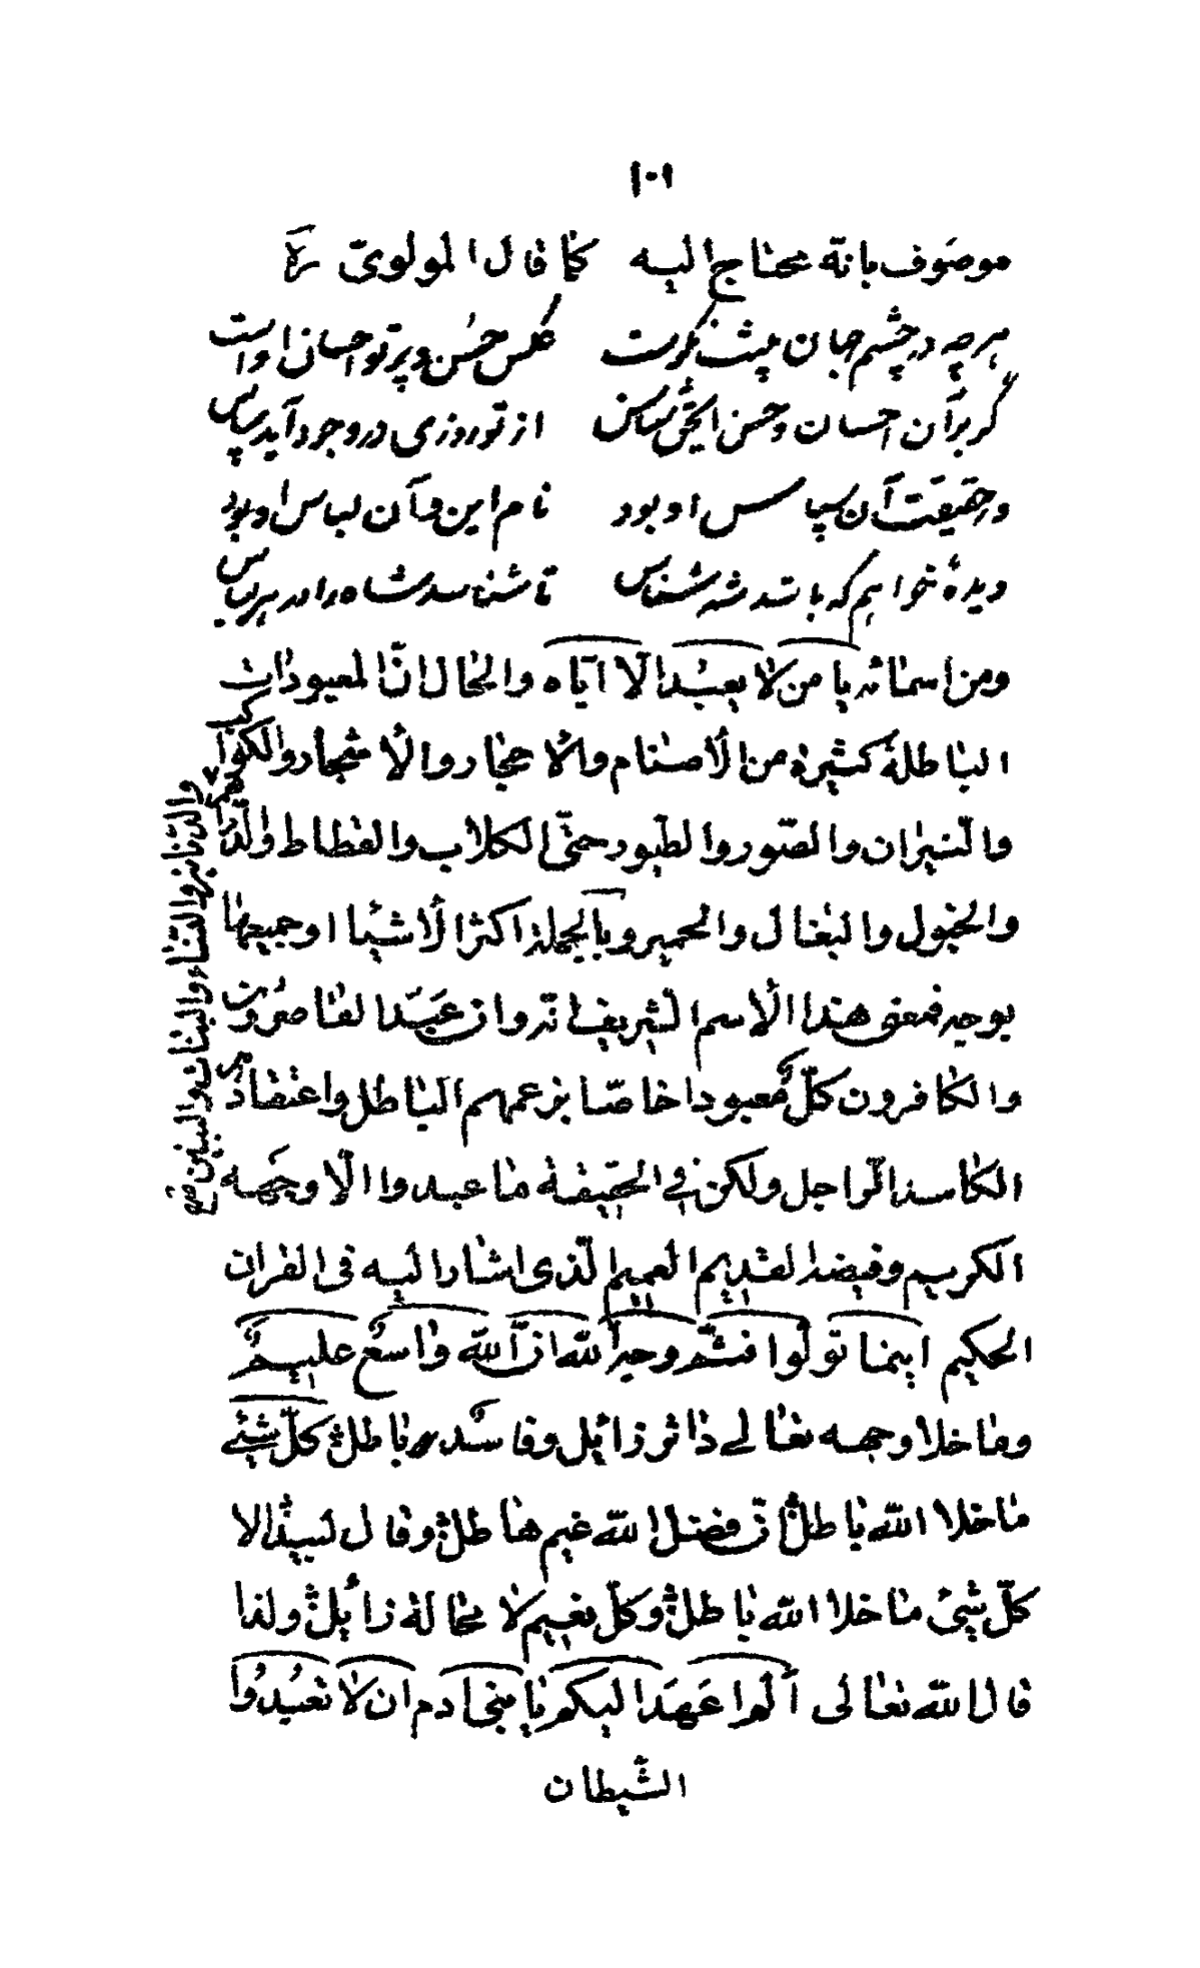 ١٠١
موصوف بانّه محتاج اليه كما قال المولوىّ ره
هر چه در چشم جهان بينت نكوست عكس حسن و پرتو احسان اوست
گر بر آن احسان و حسن ای حق شناس از تو روزی در وجود آيد سپاس
در حقيقت آن سپاس او بود نام اين و آن لباس او بود
ديدهٔ خواهم كه باشد شه شناس تا شناسد شاه را در هر لباس
ومن اسمائه يا من لا يعبد الّا ايّاه والحال انّ المعبودات
الباطلة كثيرة من الأصنام والأحجار والأشجار والكواكب
والنّيران والصّور والطيور حتّى الكلاب والقطاط والدّراهم
والدّنانير والنّساء والبنات والبنين صح
والخيول والبغال والحمير وبالجملة اكثر الأشياء او جميعها
بوجه فمعنى هذا الأسم الشريف انّه وان عبد القاصرون
والكافرون كلّ معبودا خاصّا بزعمهم الباطل واعتقادهم
الكاسد الراجل ولكن في الحقيقة ما عبدوا الّا وجهه
الكريم وفيضه القديم العميم الّذى اشار اليه فى القران
الحكيم اينما تولّوا فثمّ وجه الله انّ الله واسع عليم
وما خلا وجهه تعالى داثر زائل وفاسد وباطل كلّ شيئ
ما خلا الله باطل انّ فضل الله غيم هاطل وقال لبيد الا
كلّ شيئ ما خلا الله باطل وكلّ نعيم لا محالة زائل ولذا
قال الله تعالى ألم اعهد اليكم يا بنى ادم ان لا تعبدوا
الشّيطان